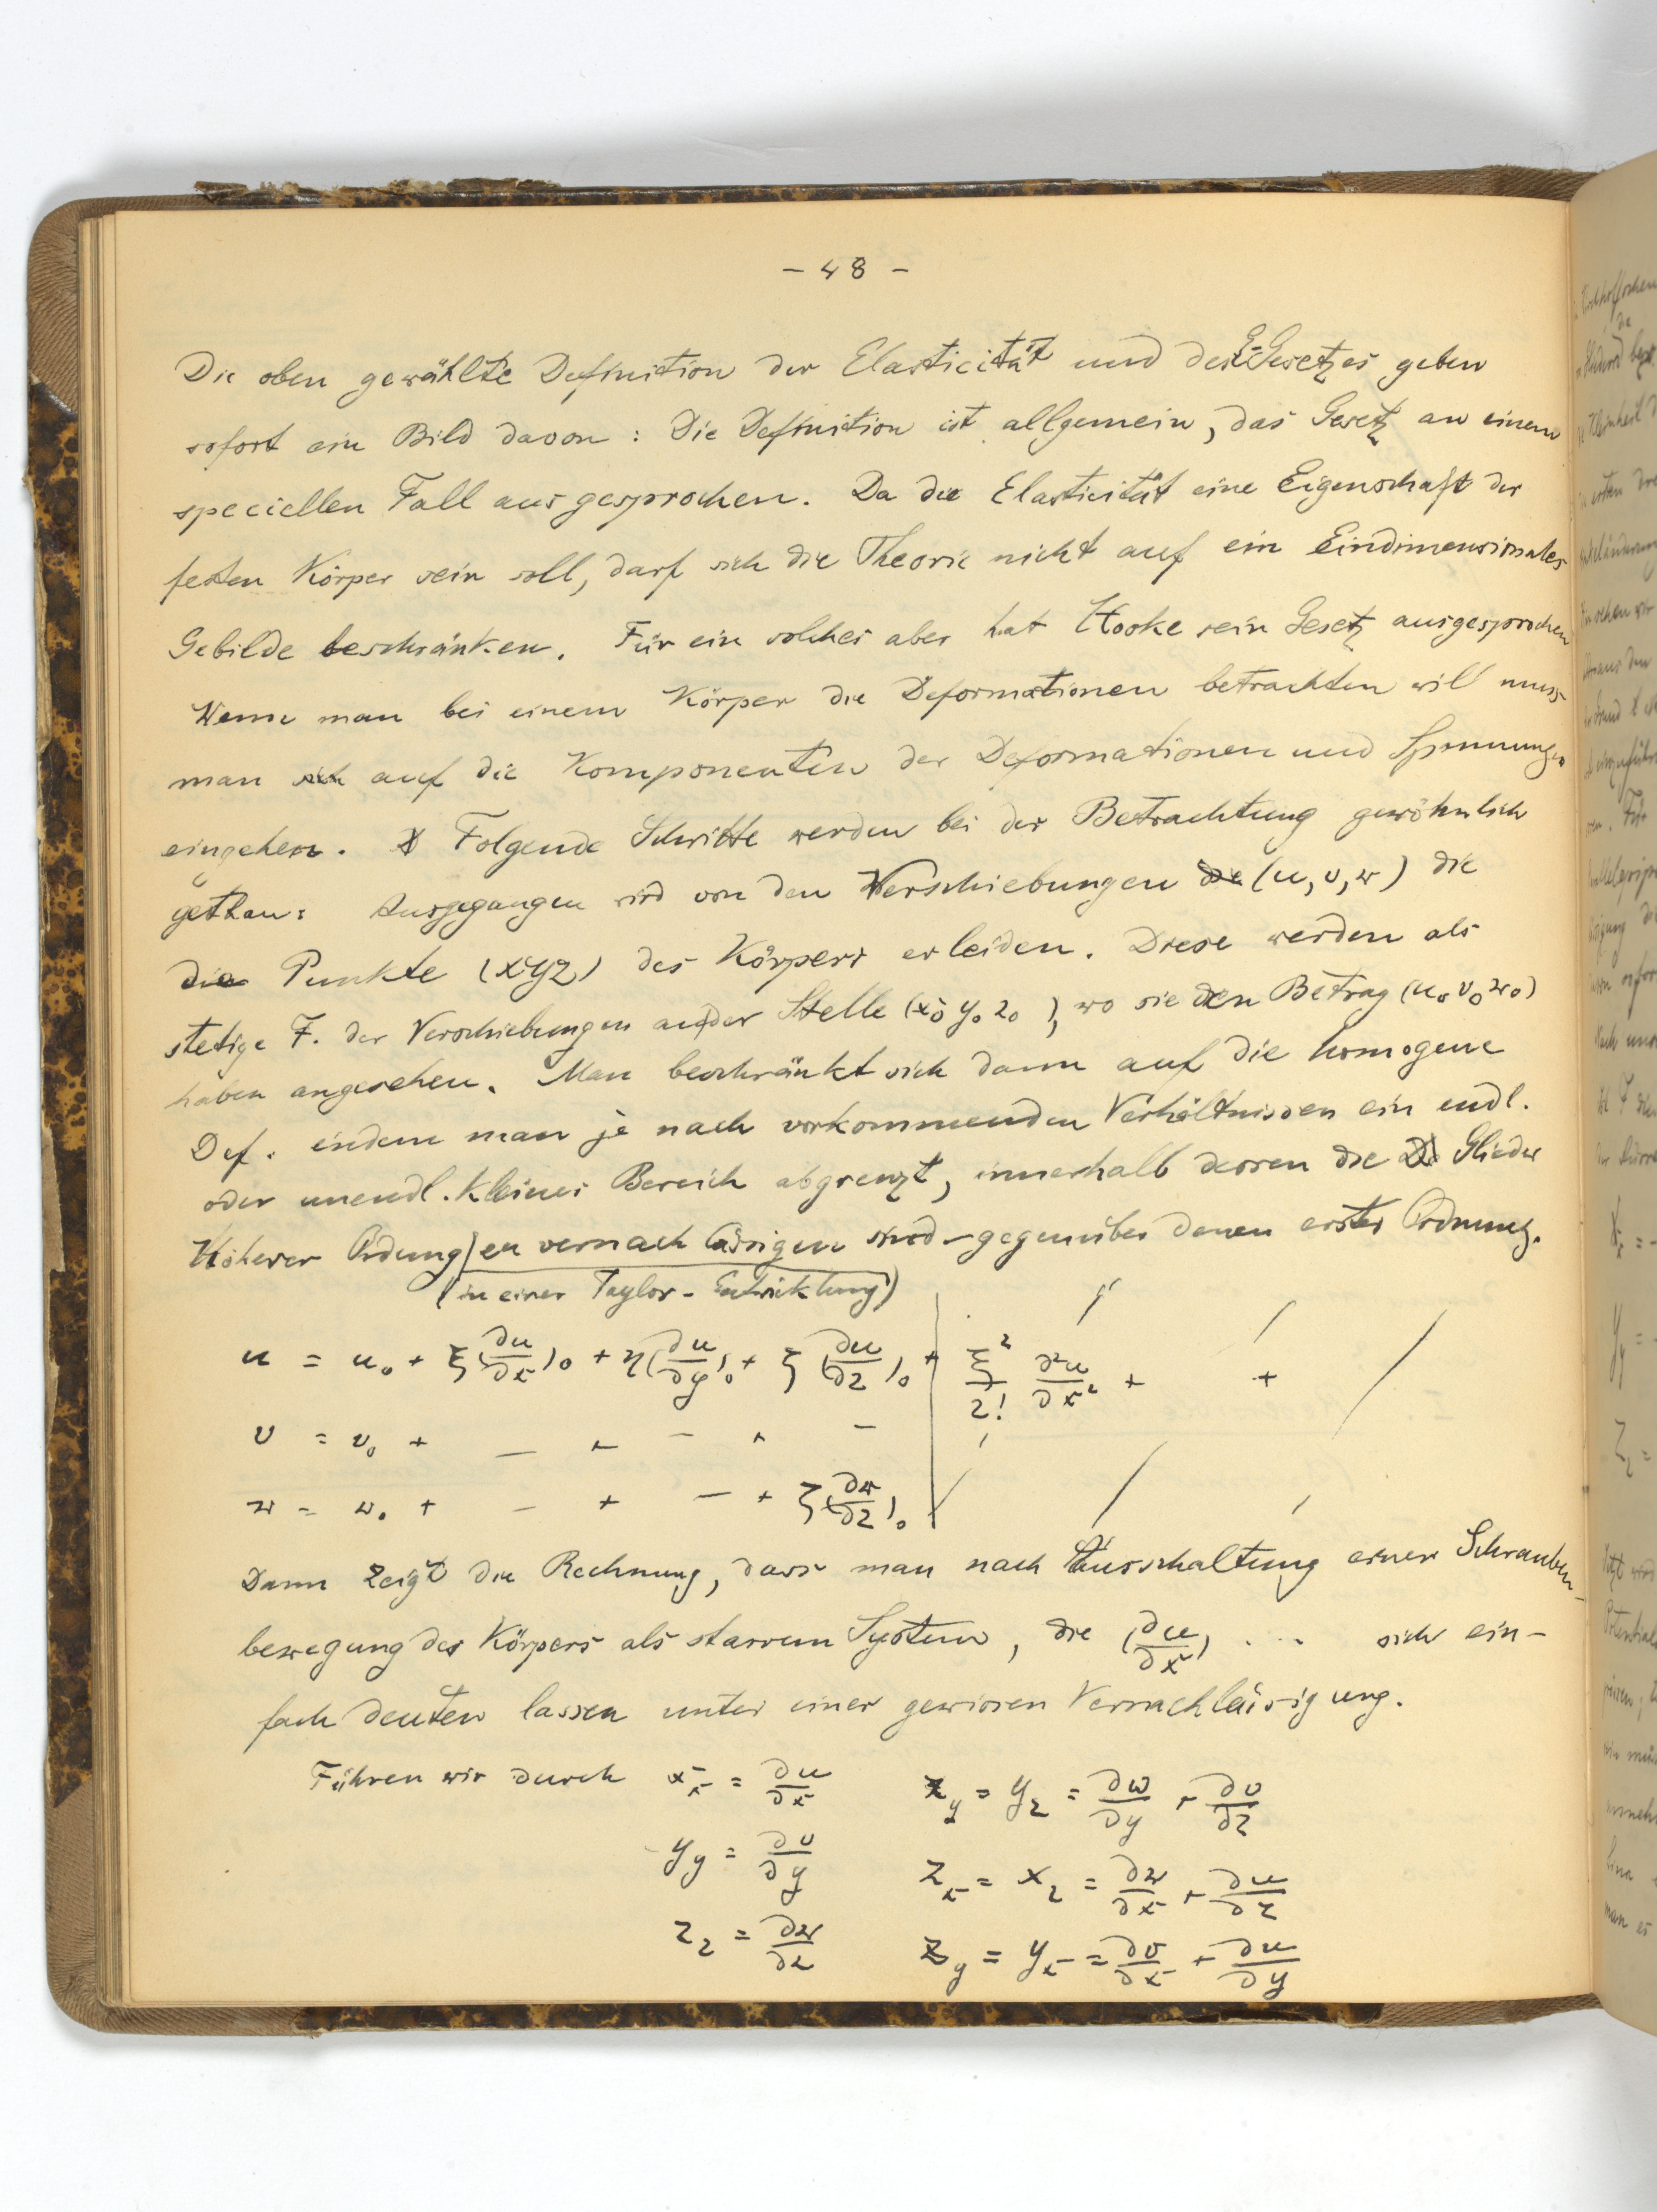 - 48 -
Die oben gewählte Definition der Elasticität und des E-Gesetzes geben
sofort ein Bild davon : Die Definition ist allgemein, das Gesetz an einem
speciellen Fall ausgesprochen. Da die Elasticität eine Eigenschaft der
festen Körper sein soll, darf sich die Theorie nicht auf ein Eindimensionales
Gebilde beschränken. Für ein solches aber hat Hooke sein Gesetz ausgesprochen
Wenn man bei einem Körper die Deformationen betrachten will muss
man sich auf die Komponenten der Deformationen und Spannungen
eingehen. Folgende Schritte werden bei der Betrachtung gewöhnlich
gethan: Ausgegangen wird von den Verschiebungen die (u, v, w) die
die Punkte (xyz) des Körpers erleiden. Diese werden als
stetige F. der Verschiebungen an der Stelle (x₀ y₀ z₀), wo sie den Betrag (u₀ v₀ w₀)
haben angesehen. Man beschränkt sich dann auf die homogene
Def. indem man je nach vorkommenden Verhältnissen ein endl.
oder unendl. kleines Bereich abgrenzt, innerhalb dessen die Glieder
Höherer Ordnung en vernachlässigen sind - gegenüber denen erster Ordnung.
(in einer Taylor-Entwicklung)
u = u₀ + ξ(∂u/∂x)₀ + η(∂u/∂y)₀ + ζ(∂u/∂z)₀ + | ξ²/2! ∂²u/∂x² + +
v = v₀ + — + — + —
w = w₀ + — + — + ζ(∂w/∂z)₀
Dann zeigt die Rechnung, dass man nach Ausschaltung einer Schrauben-
bewegung des Körpers als starrem System, die (∂u/∂x) ... sich ein-
fach deuten lassen unter einer gewissen Vernachlässigung.
Führen wir durch x_x = ∂u/∂x z_y = y_z = ∂w/∂y + ∂v/∂z
y_y = ∂v/∂y z_x = x_z = ∂w/∂x + ∂u/∂z
z_z = ∂w/∂z z_y = y_x = ∂v/∂x + ∂u/∂y